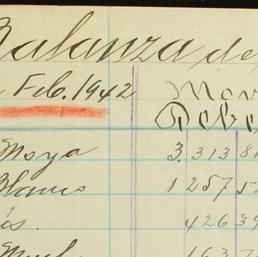 Balanza de
Feb. 1942 Mov
Debe
Moya 3.313 8
Blanco 1257 5
és. 426 39
163 7